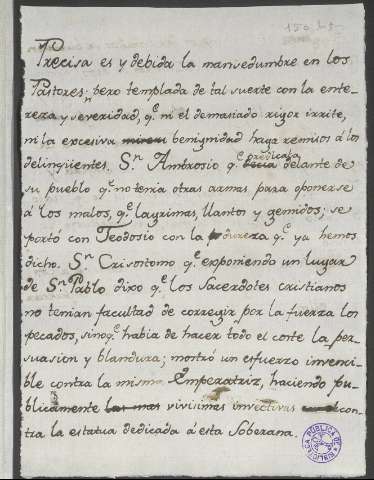 150
Precisa es y debida la mansedumbre en los
Pastores; pero templada de tal suerte con la ente-
reza y severidad, q.e ni el demasiado rigor irrite,
ni la excesiva benignidad haga remisos á los
delinqüentes. S.n Ambrosio q.e predicaba delante de
su pueblo q.e no tenía otras armas para oponerse
á los malos, q.e lagrimas, llantos y gemidos; se
portó con Teodosio con la dureza q.e ya hemos
dicho. S.n Crisostomo q.e exponiendo un lugar
de S.n Pablo dixo q.e los Sacerdotes cristianos
no tenian facultad de corregir por la fuerza los
pecados, sino q.e habia de hacer todo el corte la per
suasion y blandura; mostró un esfuerzo invenci-
ble contra la misma Emperatriz, haciendo pu-
blicamente las mas vivisimas invectivas con
tra la estatua dedicada á esta Soberana.
BIBLIOTECA PUBLICA DE